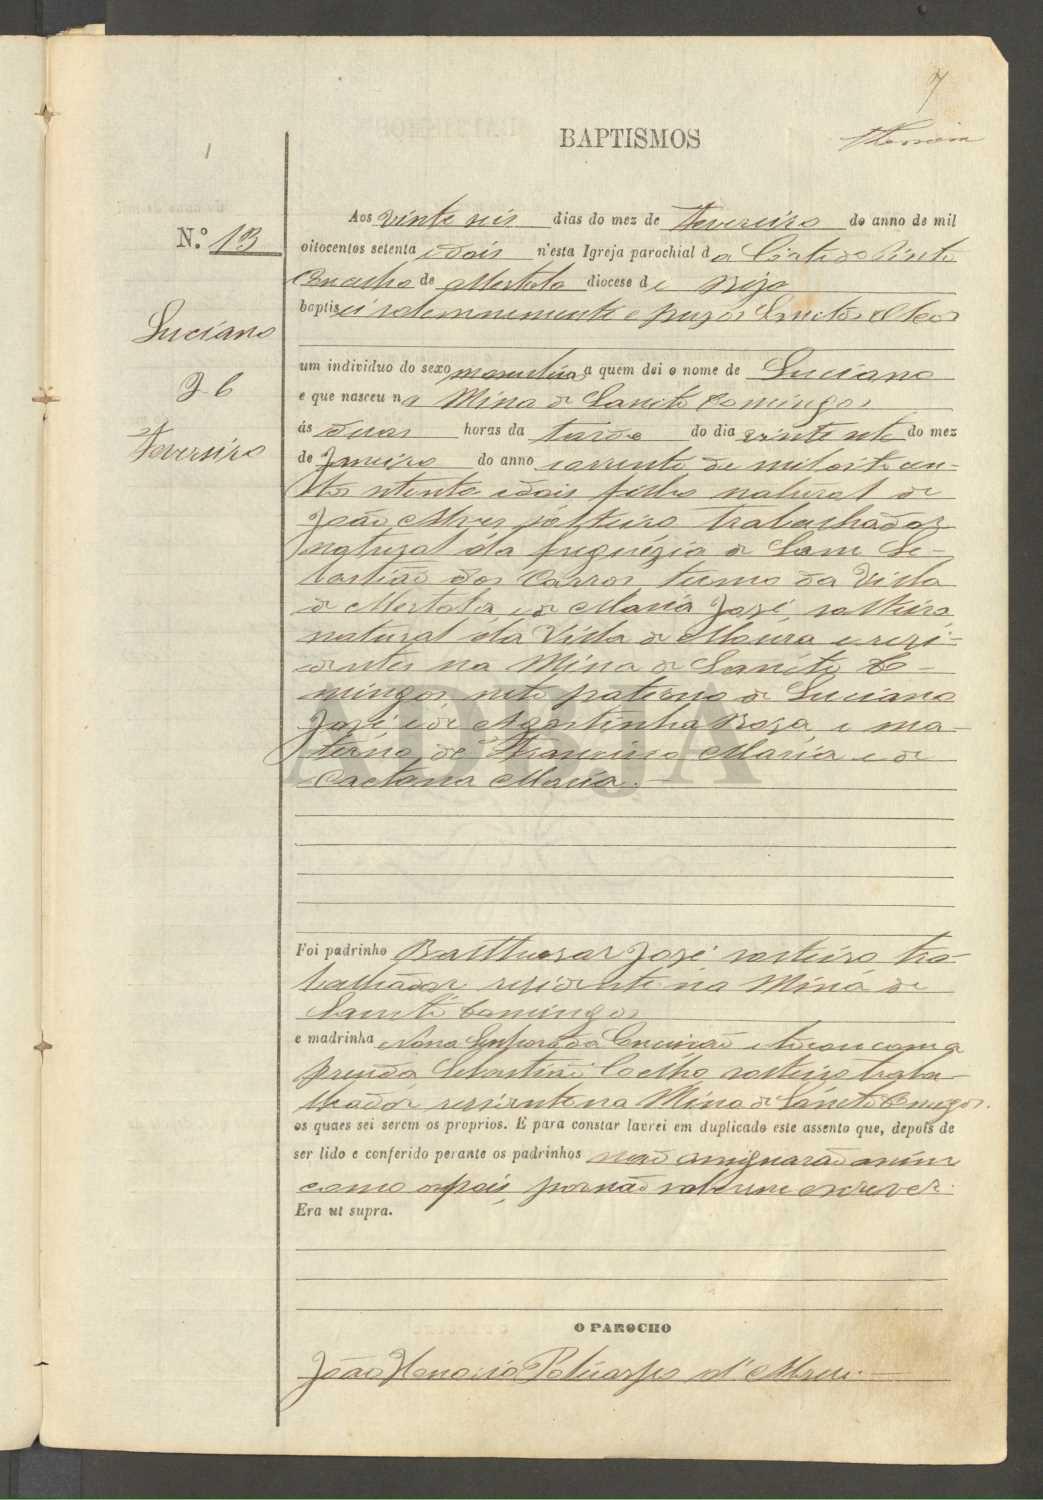 7
BAPTISMOS
1
N.º 13
Luciano
26
Fevereiro
Aos vinte seis dias do mez de Fevereiro do anno de mil
oitocentos setenta e dois n'esta Igreja parochial d
Concelho de Mertola diocese de Beja
baptisei solemnemente e puz os Sanctos Oleos
um individuo do sexo masculino a quem dei o nome de Luciano
e que nasceu na Mina de Sancto Domingos
ás duas horas da tarde do dia vinte do mez
de Janeiro do anno corrente de mil oitocen-
tos setenta e dois filho natural de
João Alves solteiro trabalhador
natural da freguezia de Sam Se-
bastião dos Carros termo da Villa
de Mertola, e de Maria José, solteira
natural da Villa de Moura e rezi-
dentes na Mina de Sancto Do-
mingos, neto paterno de Luciano
José e de Agostinha Roza, e ma-
terno de Francisco Maria e de
Caetana Maria.
ADBJA
Foi padrinho Balthezar José solteiro tra-
balhador rezidente na Mina de
Sancto Domingos
e madrinha Nossa Senhora da Conceição e tocou com a
prenda Sebastião Coelho solteiro traba-
lhador rezidente na Mina de Sancto Domingos.
os quaes sei serem os proprios. E para constar lavrei em duplicado este assento que, depois de
ser lido e conferido perante os padrinhos não assignarão assim
como os pais, por não saberem escrever.
Era ut supra.
O PAROCHO
João Policarpo d'Abreu.